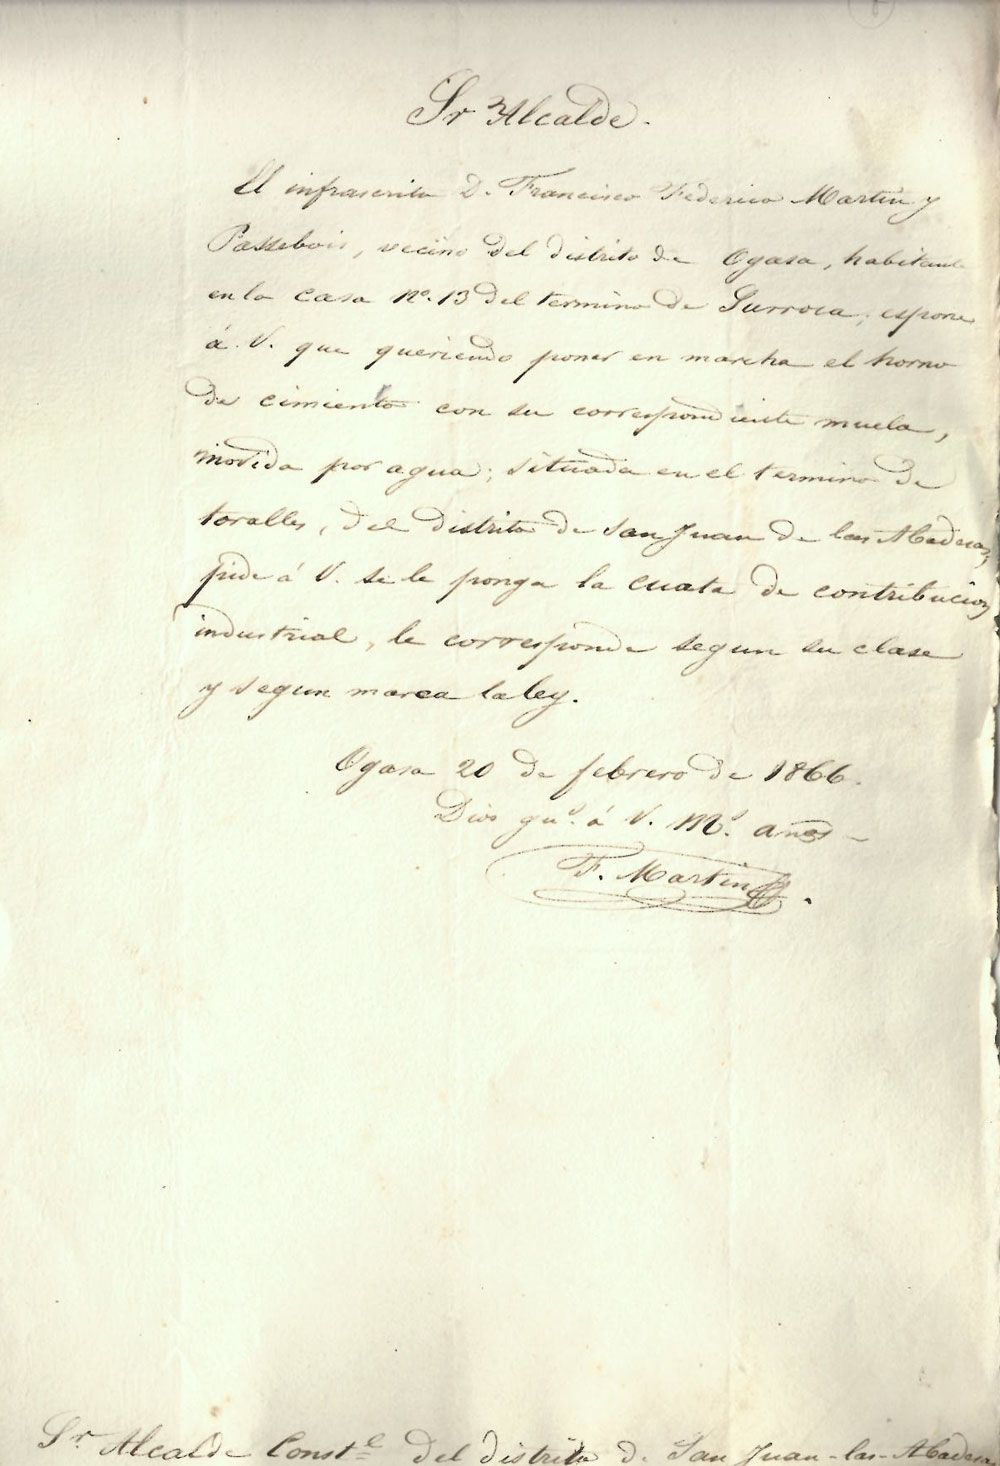 Sr Alcalde.
El infrascrito D. Francisco Federico Martin y
Passebois, vecino del distrito de Ogasa, habitante
en la casa Nº. 13 del termino de Surroca, espone
á V. que queriendo poner en marcha el horno
de cimiento con su correspondiente muela,
movida por agua; situada en el termino de
toralles, del distrito de San Juan de las Abadesas,
pide á V. se le ponga la cuata de contribucion
industrial, le corresponde segun su clase
y segun marca la ley.
Ogasa 20 de febrero de 1866.
Dios gue. á V. Ms. años
F. Martin
Sr. Alcalde Constl del distrito d. San Juan-las-Abadesas